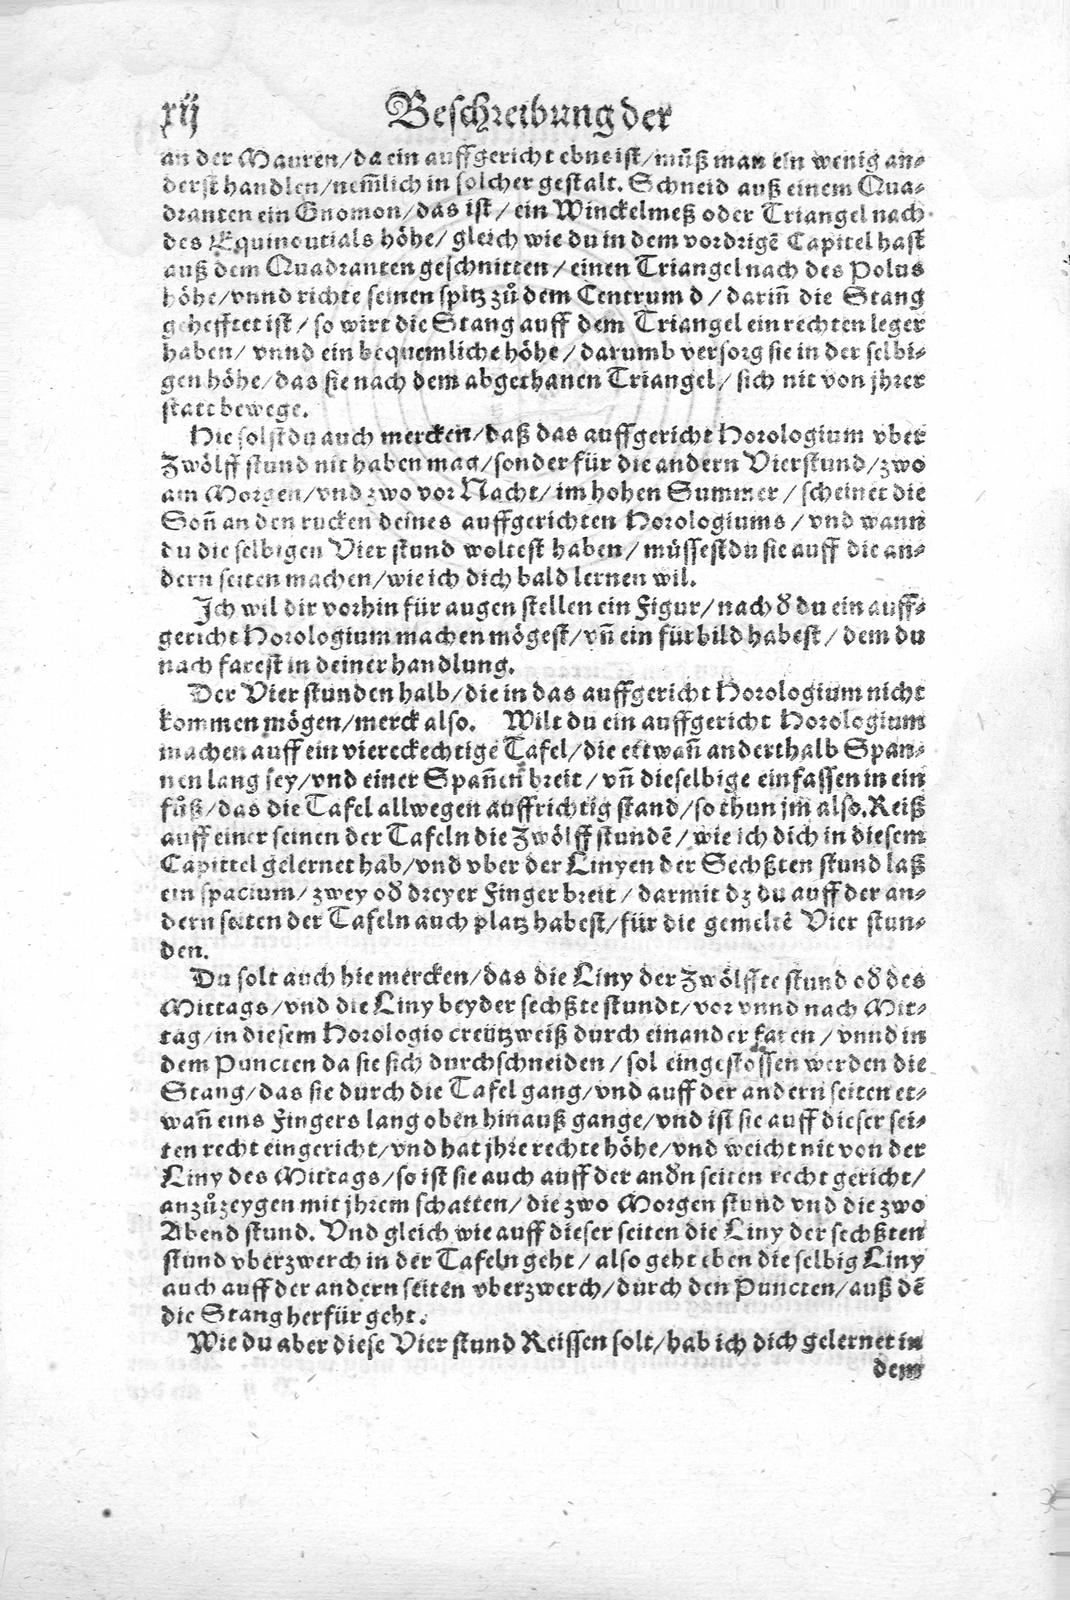 xij Beschreibung der
an der Mauren/da ein auffgericht ebne ist/můß man ein wenig an-
derst handlen/nem̃lich in solcher gestalt. Schneid auß einem Qua-
dranten ein Gnomon/das ist/ein Winckelmeß oder Triangel nach
des Equinoctials höhe/gleich wie du in dem vordrigẽ Capitel hast
auß dem Quadranten geschnitten/einen Triangel nach des Polus
höhe/vnnd richte seinen spitz zů dem Centrum d/darin̄ die Stang
gehefftet ist/so wirt die Stang auff dem Triangel ein rechten leger
haben/vnnd ein bequemliche höhe/darumb versorg sie in der selbi-
gen höhe/das sie nach dem abgethanen Triangel/sich nit von jhrer
statt bewege.
Hie solst du auch mercken/daß das auffgericht Horologium vber
Zwölff stund nit haben mag/sonder für die andern Vier stund/zwo
am Morgen/vnd zwo vor Nacht/im hohen Summer/scheinet die
Son̄ an den rucken deines auffgerichten Horologiums/vnd wann
du die selbigen Vier stund woltest haben/müssest du sie auff die an-
dern seiten machen/wie ich dich bald lernen wil.
Ich wil dir vorhin für augen stellen ein Figur/nach d̃ du ein auff-
gericht Horologium machen mögest/vn̄ ein fürbild habest/dem du
nach farest in deiner handlung.
Der Vier stunden halb/die in das auffgericht Horologium nicht
kommen mögen/merck also. Wilt du ein auffgericht Horologium
machen auff ein viereckechtige Tafel/die ettwan̄ anderthalb Span-
nen lang sey/vnd einer Span̄en breit/vn̄ dieselbige einfassen in ein
fůß/das die Tafel allwegen auffrichtig stand/so thun jm also. Reiß
auff einer seinen der Tafeln die Zwölff stundẽ/wie ich dich in diesem
Capittel gelernet hab/vnd vber der Linyen der Sechßten stund laß
ein spacium/zwey od̃ dreyer Finger breit/darmit dz du auff der an-
dern seiten der Tafeln auch platz habest/für die gemeltẽ Vier stun-
den.
Du solt auch hie mercken/das die Liny der Zwölffte stund od̃ des
Mittags/vnd die Liny beyder sechßte stundt/vor vnnd nach Mit-
tag/in diesem Horologio creützweiß durch einander faren/vnnd in
dem Puncten da sie sich durchschneiden/sol eingestossen werden die
Stang/das sie durch die Tafel gang/vnd auff der andern seiten et-
wan̄ eins Fingers lang oben hinauß gange/vnd ist sie auff dieser sei-
ten recht eingericht/vnd hat jhre rechte höhe/vnd weicht nit von der
Liny des Mittags/so ist sie auch auff der and̃n seiten recht gericht/
anzůzeygen mit jhrem schatten/die zwo Morgen stund vnd die zwo
Abend stund. Vnd gleich wie auff dieser seiten die Liny der sechßten
stund vberzwerch in der Tafeln geht/also geht eben die selbig Liny
auch auff der andern seiten vberzwerch/durch den Puncten/auß dẽ
die Stang herfür geht.
Wie du aber diese Vier stund Reissen solt/hab ich dich gelernet in
dem